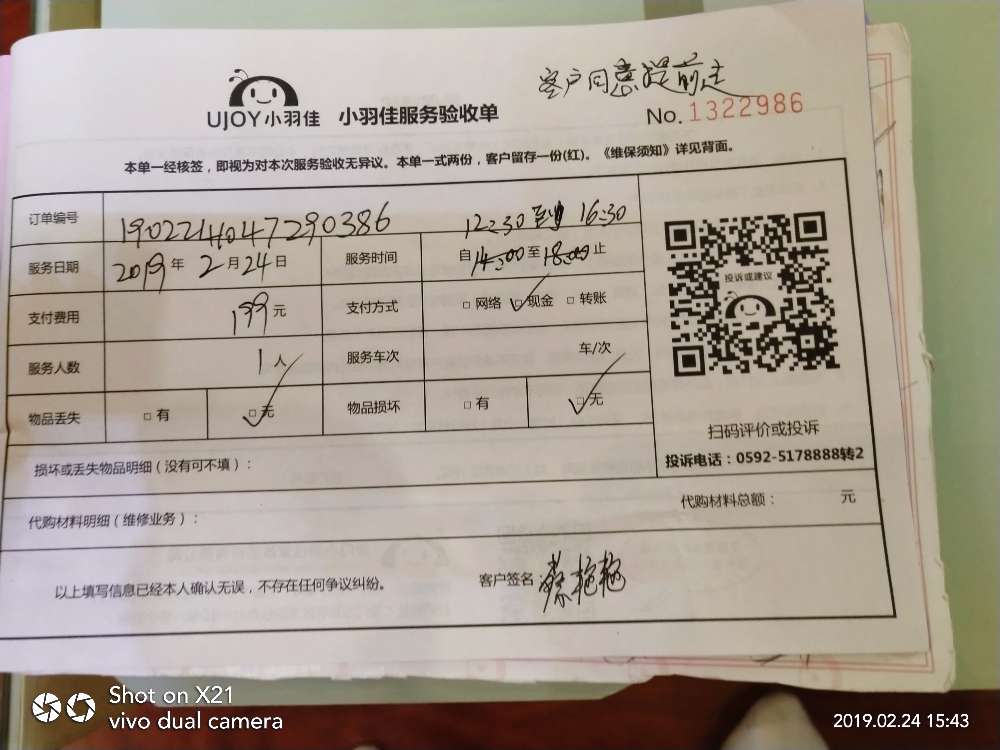 客户同意提前走
UJOY小羽佳 小羽佳服务验收单
No. 1322986
本单一经核签，即视为对本次服务验收无异议。本单一式两份，客户留存一份(红)。《维保须知》详见背面。
订单编号 1902214047290386 12:30至 16:30
服务日期 2019年2月24日 服务时间 自14:00至18:00止
支付费用 199元 支付方式 □网络 □现金 □转账
服务人数 1人 服务车次 车/次
物品丢失 □有 □无 物品损坏 □有 □无
投诉或建议
扫码评价或投诉
投诉电话：0592-5178888转2
损坏或丢失物品明细（没有可不填）：
代购材料明细（维修业务）： 代购材料总额： 元
以上填写信息已经本人确认无误，不存在任何争议纠纷。 客户签名：蔡艳艳
Shot on X21
vivo dual camera
2019.02.24 15:43